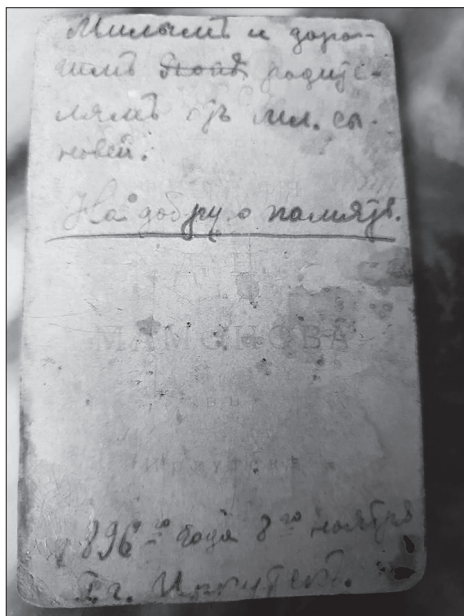 Милымъ и доро-
гимъ родите-
лямъ отъ мл. сы-
новей.
На добрую память.
МАМОНОВА
ВЪ
ИРКУТСКѢ
1896 го года 8 го ноября
г. Иркутскъ.